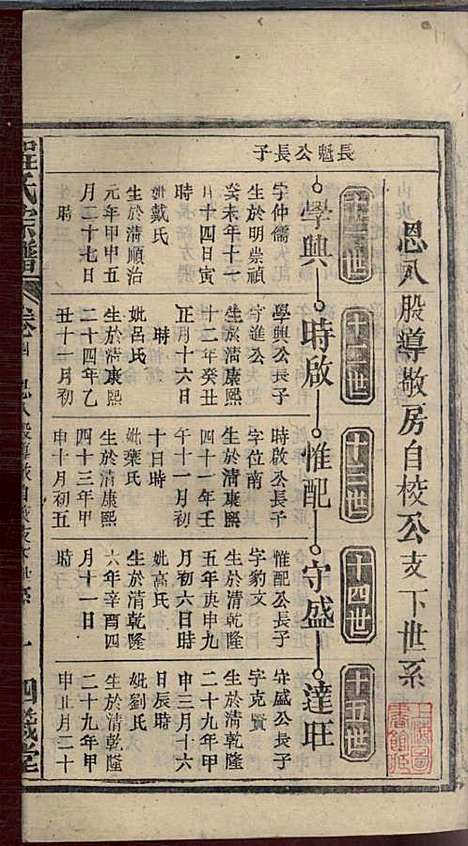 恩八股導敬房自梭公支下世系
十二世
十三世
十四世
十五世
學興
時啟
惟配
守盛
達旺
長魁公長子
字仲儒
生於明崇禎
癸未年十一
月十四日寅
時
妣戴氏
生於清順治
元年甲申五
月二十七日
時
學興公長子
字進公
生於清康熙
十二年癸丑
正月十六日
時
妣呂氏
生於清康熙
二十四年乙
丑十一月初
時啟公長子
字位南
生於清康熙
四十一年壬
午十一月初
十日時
妣葉氏
生於清康熙
四十三年甲
申十月初五
惟配公長子
字豹文
生於清乾隆
五年庚申九
月初六日時
妣高氏
生於清乾隆
六年辛酉四
月十一日
時
守盛公長子
字克賢
生於清乾隆
二十九年甲
申三月十六
日辰時
妣劉氏
生於清乾隆
二十九年甲
申五月二十
氏宗譜
四義堂